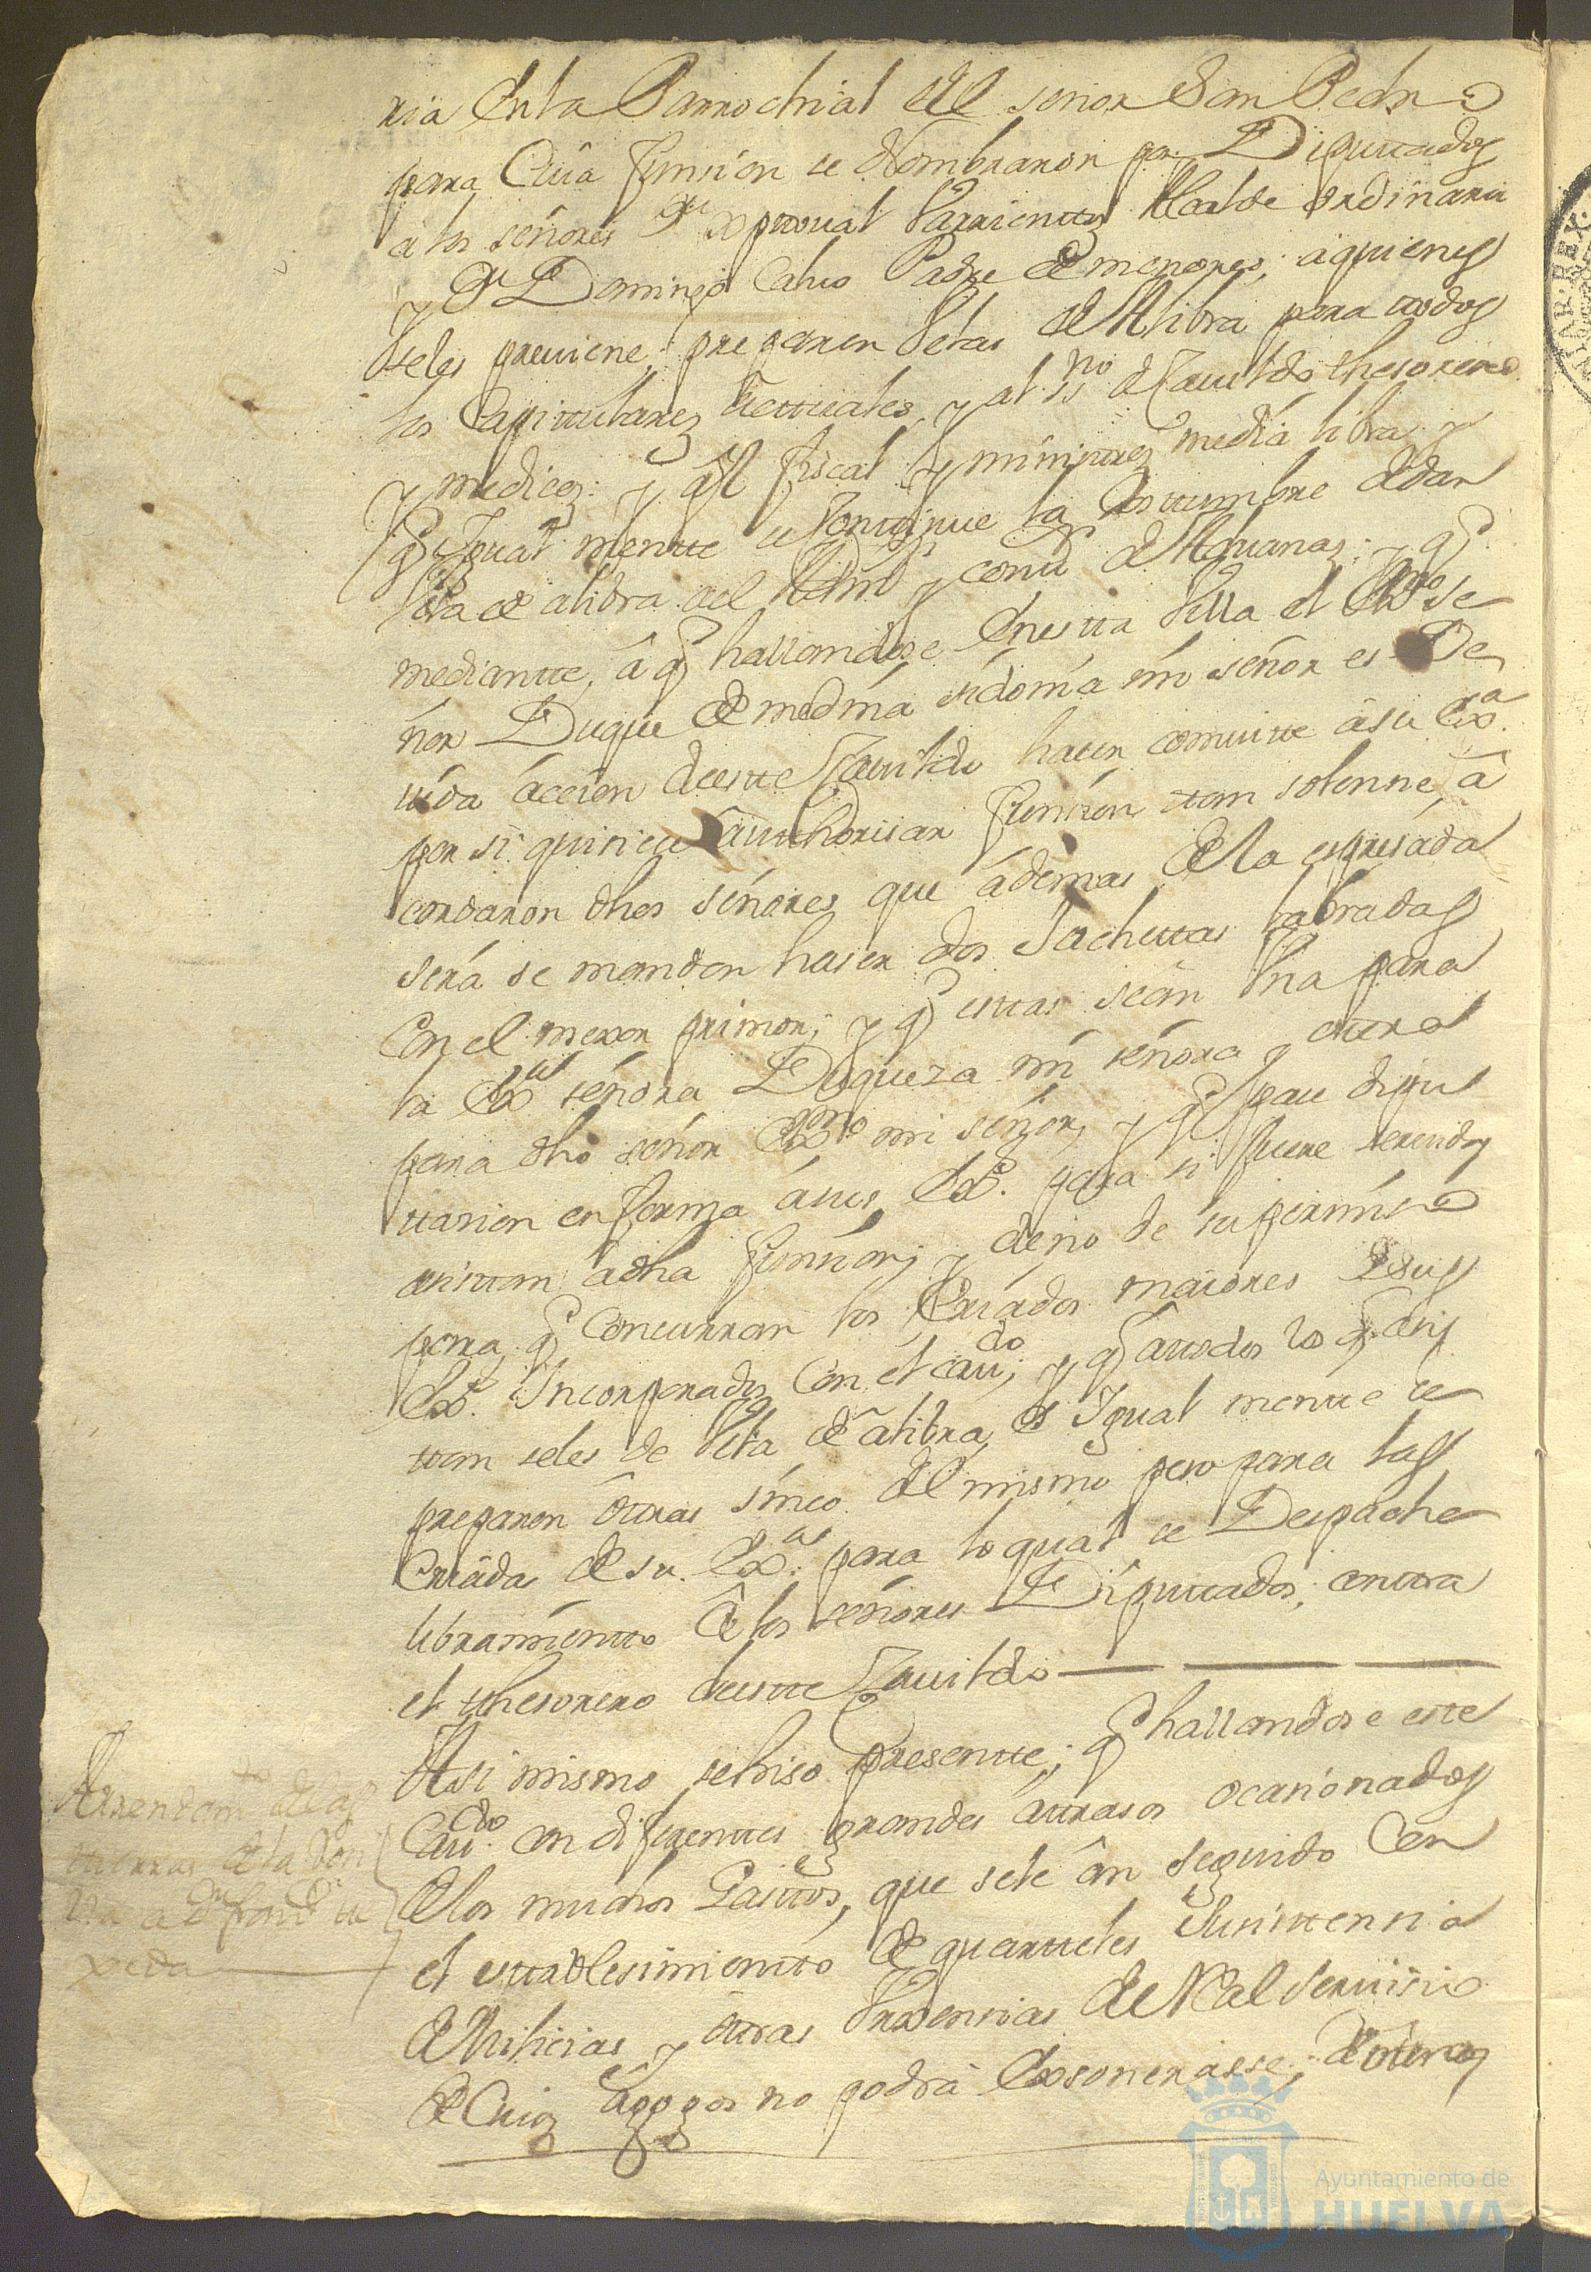 ria en la Parrochial del señor San Pedro
para Cuia funsion se Nombraron por Diputtados
a los señores Dn Xptoval Barrienttos Alcalde ordinario
y Dn Domingo Calvo Padre de menores, a quienes
se les previene, preparen Velas de A libra para ttodos
los Capittulares Acttuales, y al ssno de Cavildo thesorero
y medicos: y al fiscal y ministtros media libra y
q Igual mentte se Conttinue la Costtumbre de dar
Vela de a libra al Admr y conttr de Aduanas: y q
mediantte, â q hallandose En estta Villa el Exmo Se
ñor Duque de medina sidonia mi señor es De
vida acsion de estte Cavildo haser comvitte â su Exa
por si quisiereautthorisar funsion ttan solenne, a
cordaron dhos señores que ádemas de la espresada
sera se manden haser dos Jachettas labradas
Con el mexor primor; y q esttas seân Una para
la Exa señora Duqueza mi señora y ottra
para dho señor Exmo mi señor, y q pase dipu
ttasion en forma á sus Exs. para si fuere servidos
asisttan â dha funsion; y dejno de su permiso
para q Concurran los Criados maiores de sus
Exs. Incorporados Con el cavdo; y q a ttodos los q asis
ttan se les de Vela de a libra, e Igual mentte se
preparen ôttras sinco del mismo peso para las
Criadas de su Exa. para lo qual se Despache
libramientto â los señores Diputtados, conttra
el thesorero de estte Cavildo
Asi mismo se hiso presentte; q hallandose este
Cavdo. en diferenttes grandes attrasos ocasionados
de los muchos Gasttos, que se le ân seguido Con
el esttablesimientto de quartteles Susisttensia
de Milicias y ôttras Urxensias de Real Servisio
de Cuios âogos no podrá Exsonerasse; de
Arrendamto de las
ttierras de la
a Dn
xeda
Ayuntamiento de
HUELVA